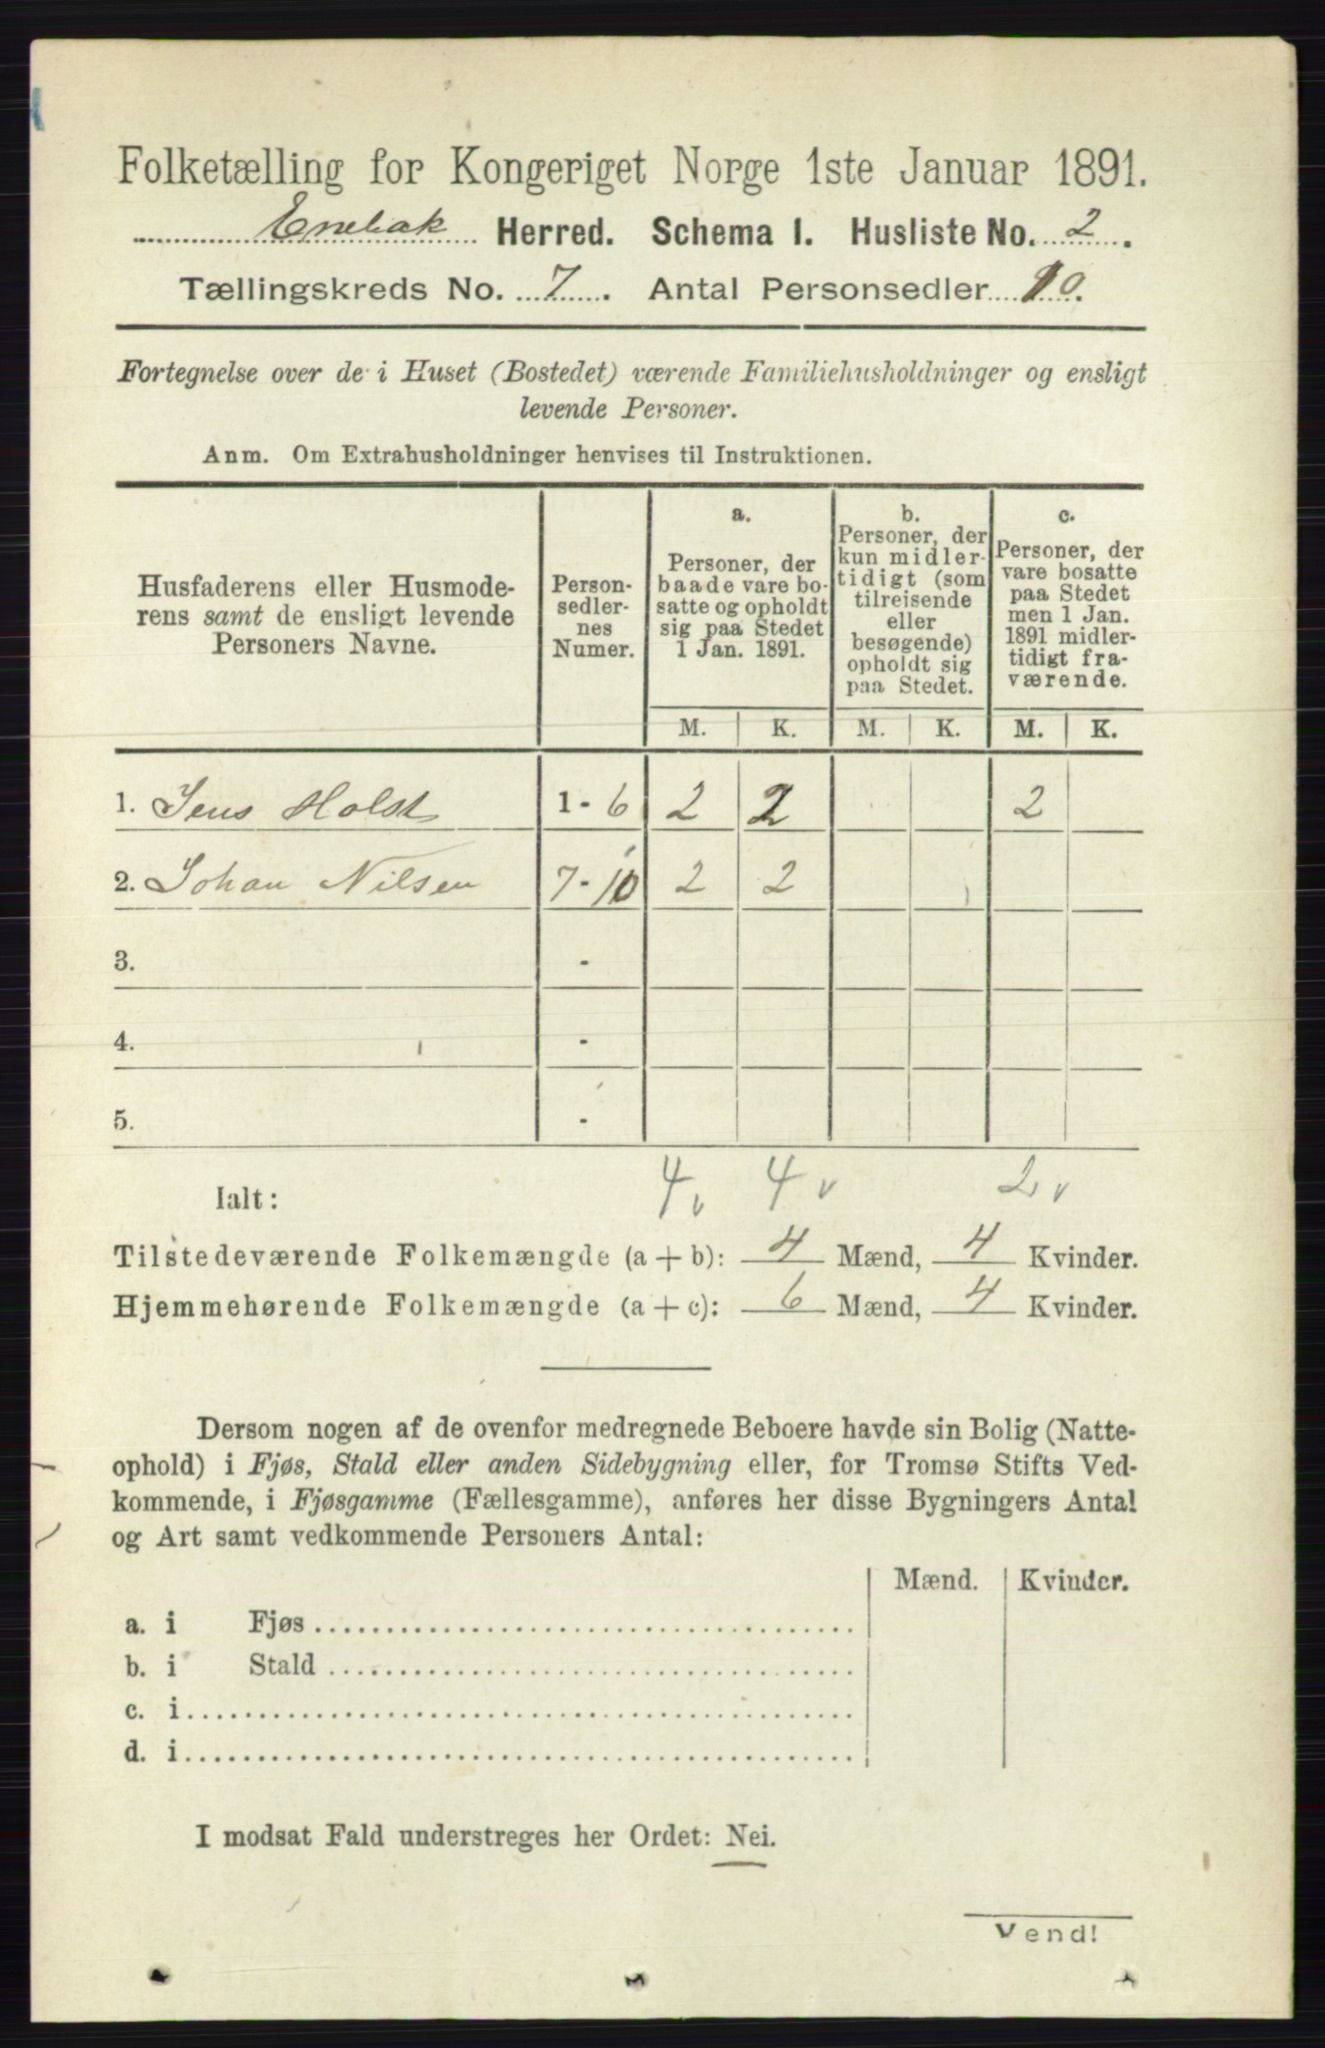 Folketælling for Kongeriget Norge 1ste Januar 1891.
Enebak Herred. Schema 1. Husliste No. 2.
Tællingskreds No. 7. Antal Personsedler 10.
Fortegnelse over de i Huset (Bostedet) værende Familiehusholdninger og ensligt
levende Personer.
Anm. Om Extrahusholdninger henvises til Instruktionen.
Husfaderens eller Husmode-
rens samt de ensligt levende
Personers Navne.
Person-
sedler-
nes
Numer.
a.
Personer, der
baade vare bo-
satte og opholdt
sig paa Stedet
1 Jan. 1891.
b.
Personer, der
kun midler-
tidigt (som
tilreisende
eller
besøgende)
opholdt sig
paa Stedet.
c.
Personer, der
vare bosatte
paa Stedet
men 1 Jan.
1891 midler-
tidigt fra-
værende.
M. K. M. K. M. K.
1. Jens Holst 1 - 6 2 2 2
2. Johan Nilsen 7 - 10 2 2
3. -
4. -
5. -
Ialt: 4 v 4 v 2 v
Tilstedeværende Folkemængde (a + b): 4 Mænd, 4 Kvinder.
Hjemmehørende Folkemængde (a + c): 6 Mænd, 4 Kvinder.
Dersom nogen af de ovenfor medregnede Beboere havde sin Bolig (Natte-
ophold) i Fjøs, Stald eller anden Sidebygning eller, for Tromsø Stifts Ved-
kommende, i Fjøsgamme (Fællesgamme), anføres her disse Bygningers Antal
og Art samt vedkommende Personers Antal:
Mænd. Kvinder.
a. i Fjøs
b. i Stald
c. i
d. i
I modsat Fald understreges her Ordet: Nei.
Vend!